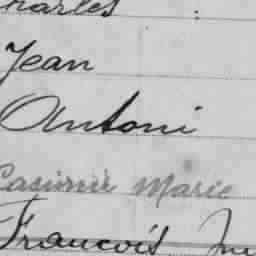 Charles
Jean
Antoni
Casimir Marie
François